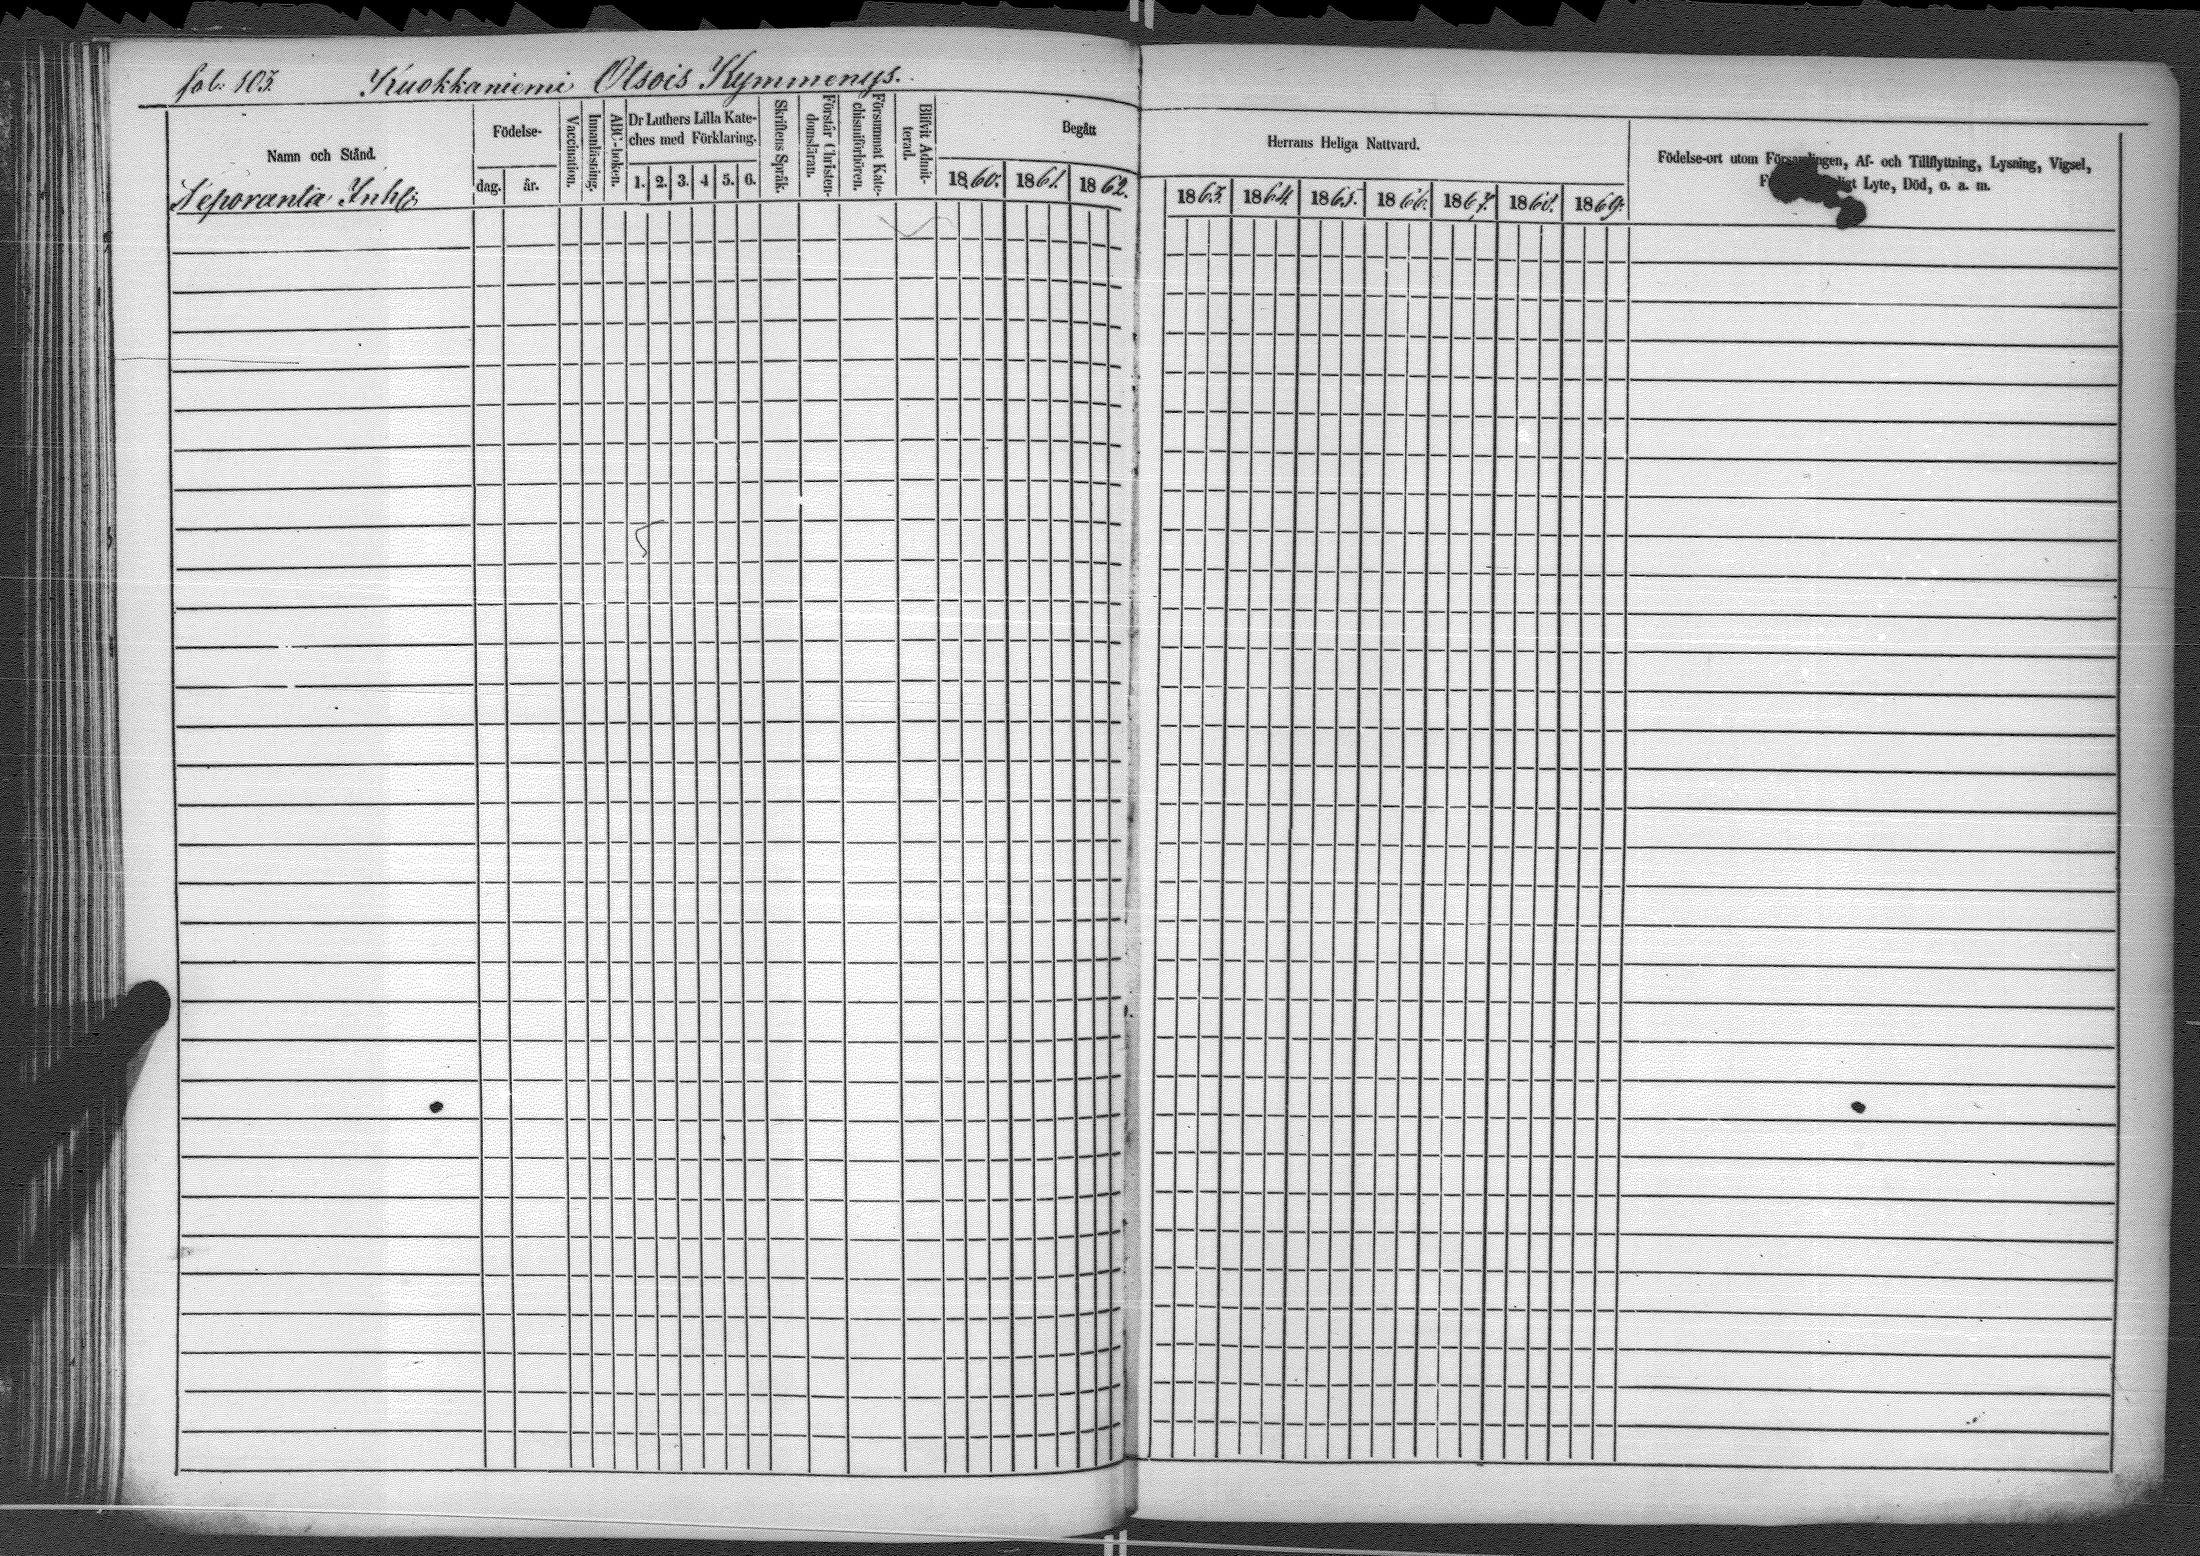 fol. 103. Kuokkaniemi Otsois Kymmenys.
Namn och Stånd.
Födelse-
dag.
år.
Vaccination.
Innanläsning.
ABC-boken.
Dr Luthers Lilla Kate-
ches med Förklaring.
1. 2. 3. 4 5. 6.
Skriftens Språk.
Förstår Christen-
domsläran.
Försummat Kate-
chismiförhören.
Blifvit Admit-
terad.
Begått
1860. 1861. 1862.
Herrans Heliga Nattvard.
1863. 1864. 1865. 1866. 1867. 1868. 1869.
Födelse-ort utom Församlingen, Af- och Tillflyttning, Lysning, Vigsel,
Lyte, Död, o. a. m.
Seporanta